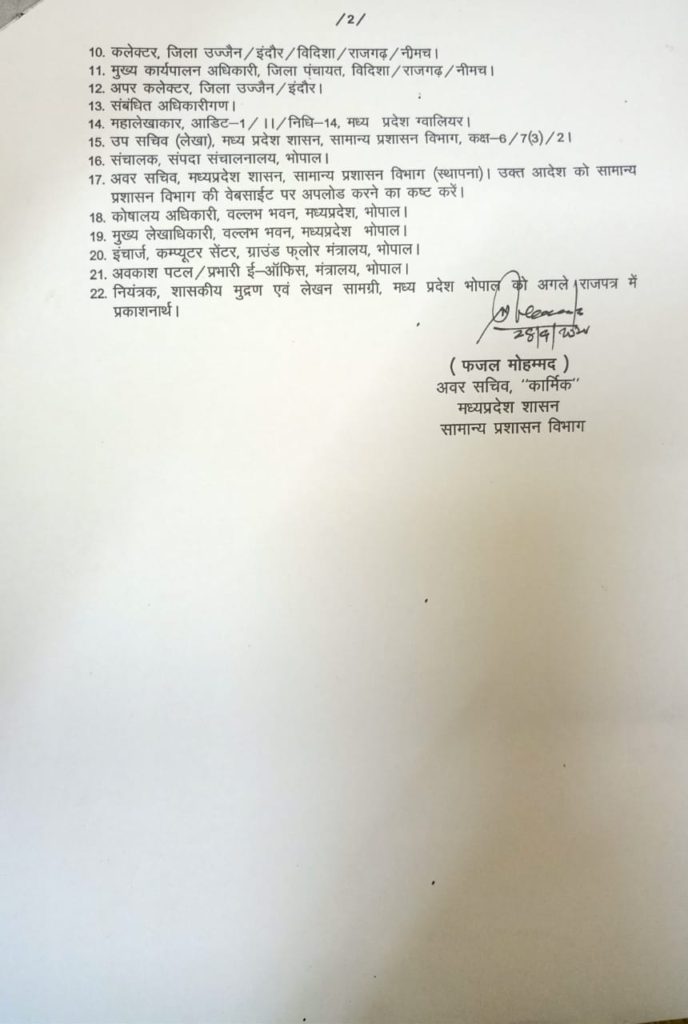 /2/
10. कलेक्टर, जिला उज्जैन/इंदौर/विदिशा/राजगढ़/नीमच।
11. मुख्य कार्यपालन अधिकारी, जिला पंचायत, विदिशा/राजगढ़/नीमच।
12. अपर कलेक्टर, जिला उज्जैन/इंदौर।
13. संबंधित अधिकारीगण।
14. महालेखाकार, आडिट–1/।।/निधि–14, मध्य प्रदेश ग्वालियर।
15. उप सचिव (लेखा), मध्य प्रदेश शासन, सामान्य प्रशासन विभाग, कक्ष–6/7(3)/2।
16. संचालक, संपदा संचालनालय, भोपाल।
17. अवर सचिव, मध्यप्रदेश शासन, सामान्य प्रशासन विभाग (स्थापना)। उक्त आदेश को सामान्य
प्रशासन विभाग की वेबसाईट पर अपलोड करने का कष्ट करें।
18. कोषालय अधिकारी, वल्लभ भवन, मध्यप्रदेश, भोपाल।
19. मुख्य लेखाधिकारी, वल्लभ भवन, मध्यप्रदेश भोपाल।
20. इंचार्ज, कम्प्यूटर सेंटर, ग्राउंड फ्लोर मंत्रालय, भोपाल।
21. अवकाश पटल/प्रभारी ई–ऑफिस, मंत्रालय, भोपाल।
22. नियंत्रक, शासकीय मुद्रण एवं लेखन सामग्री, मध्य प्रदेश भोपाल को अगले राजपत्र में
प्रकाशनार्थ।
( फजल मोहम्मद )
अवर सचिव, "कार्मिक"
मध्यप्रदेश शासन
सामान्य प्रशासन विभाग